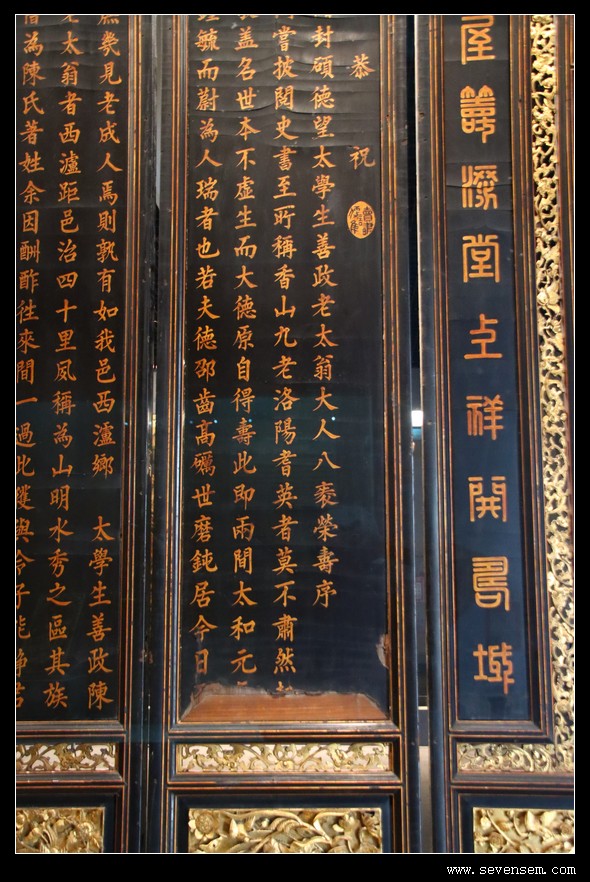 屋籌添堂上祥開壽域
恭祝
封碩德望太學生善政老太翁大人八袠榮壽序
嘗披閱史書至所稱香山九老洛陽耆英者莫不肅然
蓋名世本不虛生而大德原自得壽此即兩間太和元
毓而蔚為人瑞者也若夫德邵齒高礪世磨鈍居今日
幾見老成人焉則孰有如我邑西瀘鄉 太學生善政陳
太翁者西瀘距邑治四十里夙稱為山明水秀之區其族
為陳氏著姓余因酬酢往來間一過此
www.sevensem.com